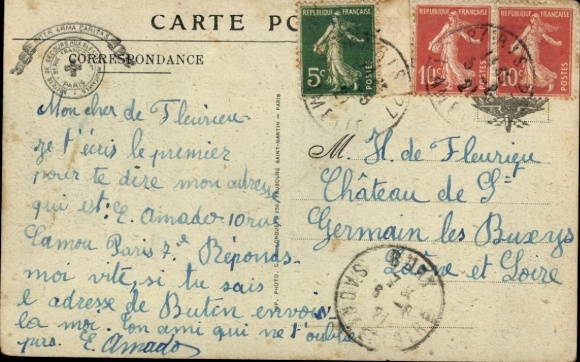 CARTE PO
CORRESPONDANCE
INTER ARMA CARITAS
PARIS
RÉPUBLIQUE FRANÇAISE
5c
POSTES
RÉPUBLIQUE FRANÇAISE
10c
POSTES
RÉPUBLIQUE FRANÇAISE
10c
POSTES
Mon cher de Fleurieu
je t'écris le premier
pour te dire mon adresse
qui est: E. Amado 10 rue
Camou Paris 7e Réponds-
moi vite, si tu sais
l'adresse de Buten envoie-
la moi. Ton ami qui ne t'oublie
pas. E. Amado
FAUBOURG SAINT-MARTIN - PARIS
M. H. de Fleurieu
Château de St
Germain les Buxeys
Saône et Loire